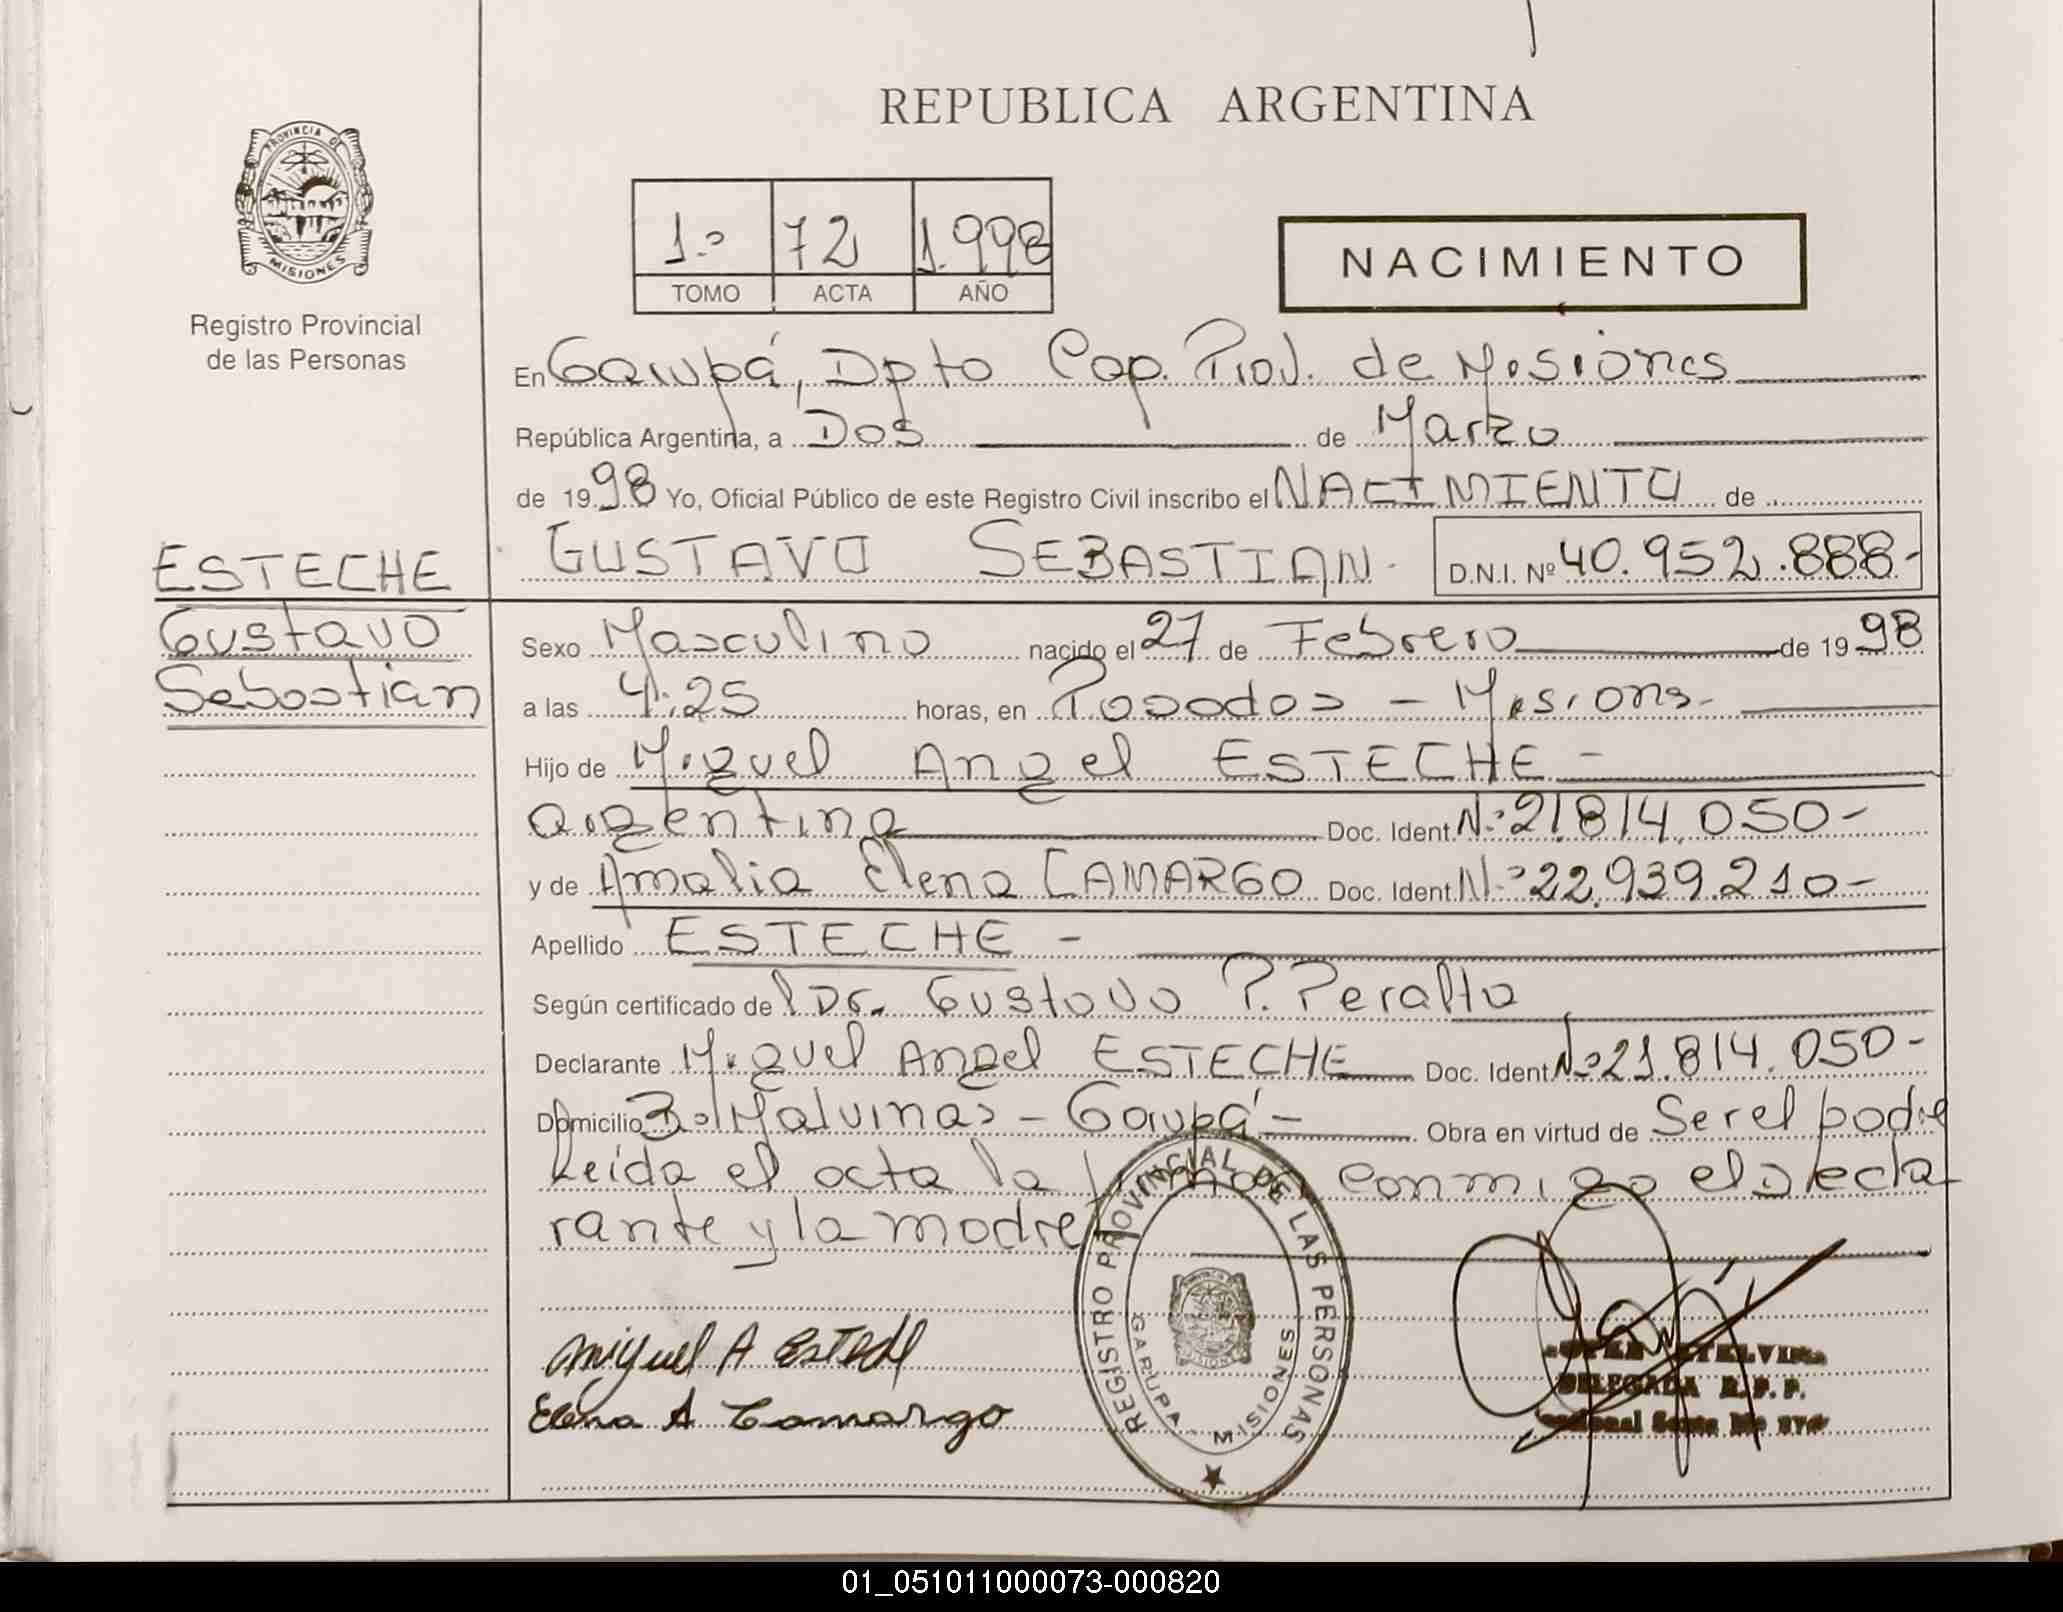 REPUBLICA ARGENTINA
PROVINCIA DE
MISIONES
Registro Provincial
de las Personas
1.º 72 1.998
TOMO ACTA AÑO
NACIMIENTO
En Garupá, Dpto Cap. Prov. de Misiones
República Argentina, a Dos de Marzo
de 1998 Yo, Oficial Público de este Registro Civil inscribo el NACIMIENTO de
ESTECHE GUSTAVO SEBASTIAN. D.N.I. Nº 40.952.888-
Gustavo
Sebastian
Sexo Masculino nacido el 27 de Febrero de 1998
a las 4:25 horas, en Posadas - Misiones-
Hijo de Miguel Angel ESTECHE -
argentina Doc. Ident. Nº 21.814.050-
y de Amalia Elena CAMARGO Doc. Ident. Nº 22.939.210-
Apellido ESTECHE -
Según certificado del Dr. Gustavo P. Peralta
Declarante Miguel Angel ESTECHE Doc. Ident. Nº 21.814.050-
Domicilio Bº Malvinas - Garupá - Obra en virtud de Ser el padre
Leída el acta la conmigo el Decla
rante y la madre
Miguel A Esteche
Elena A Camargo
REGISTRO PROVINCIAL DE LAS PERSONAS
GARUPA MISIONES
DELEGADA R.P.P.
01_051011000073-000820